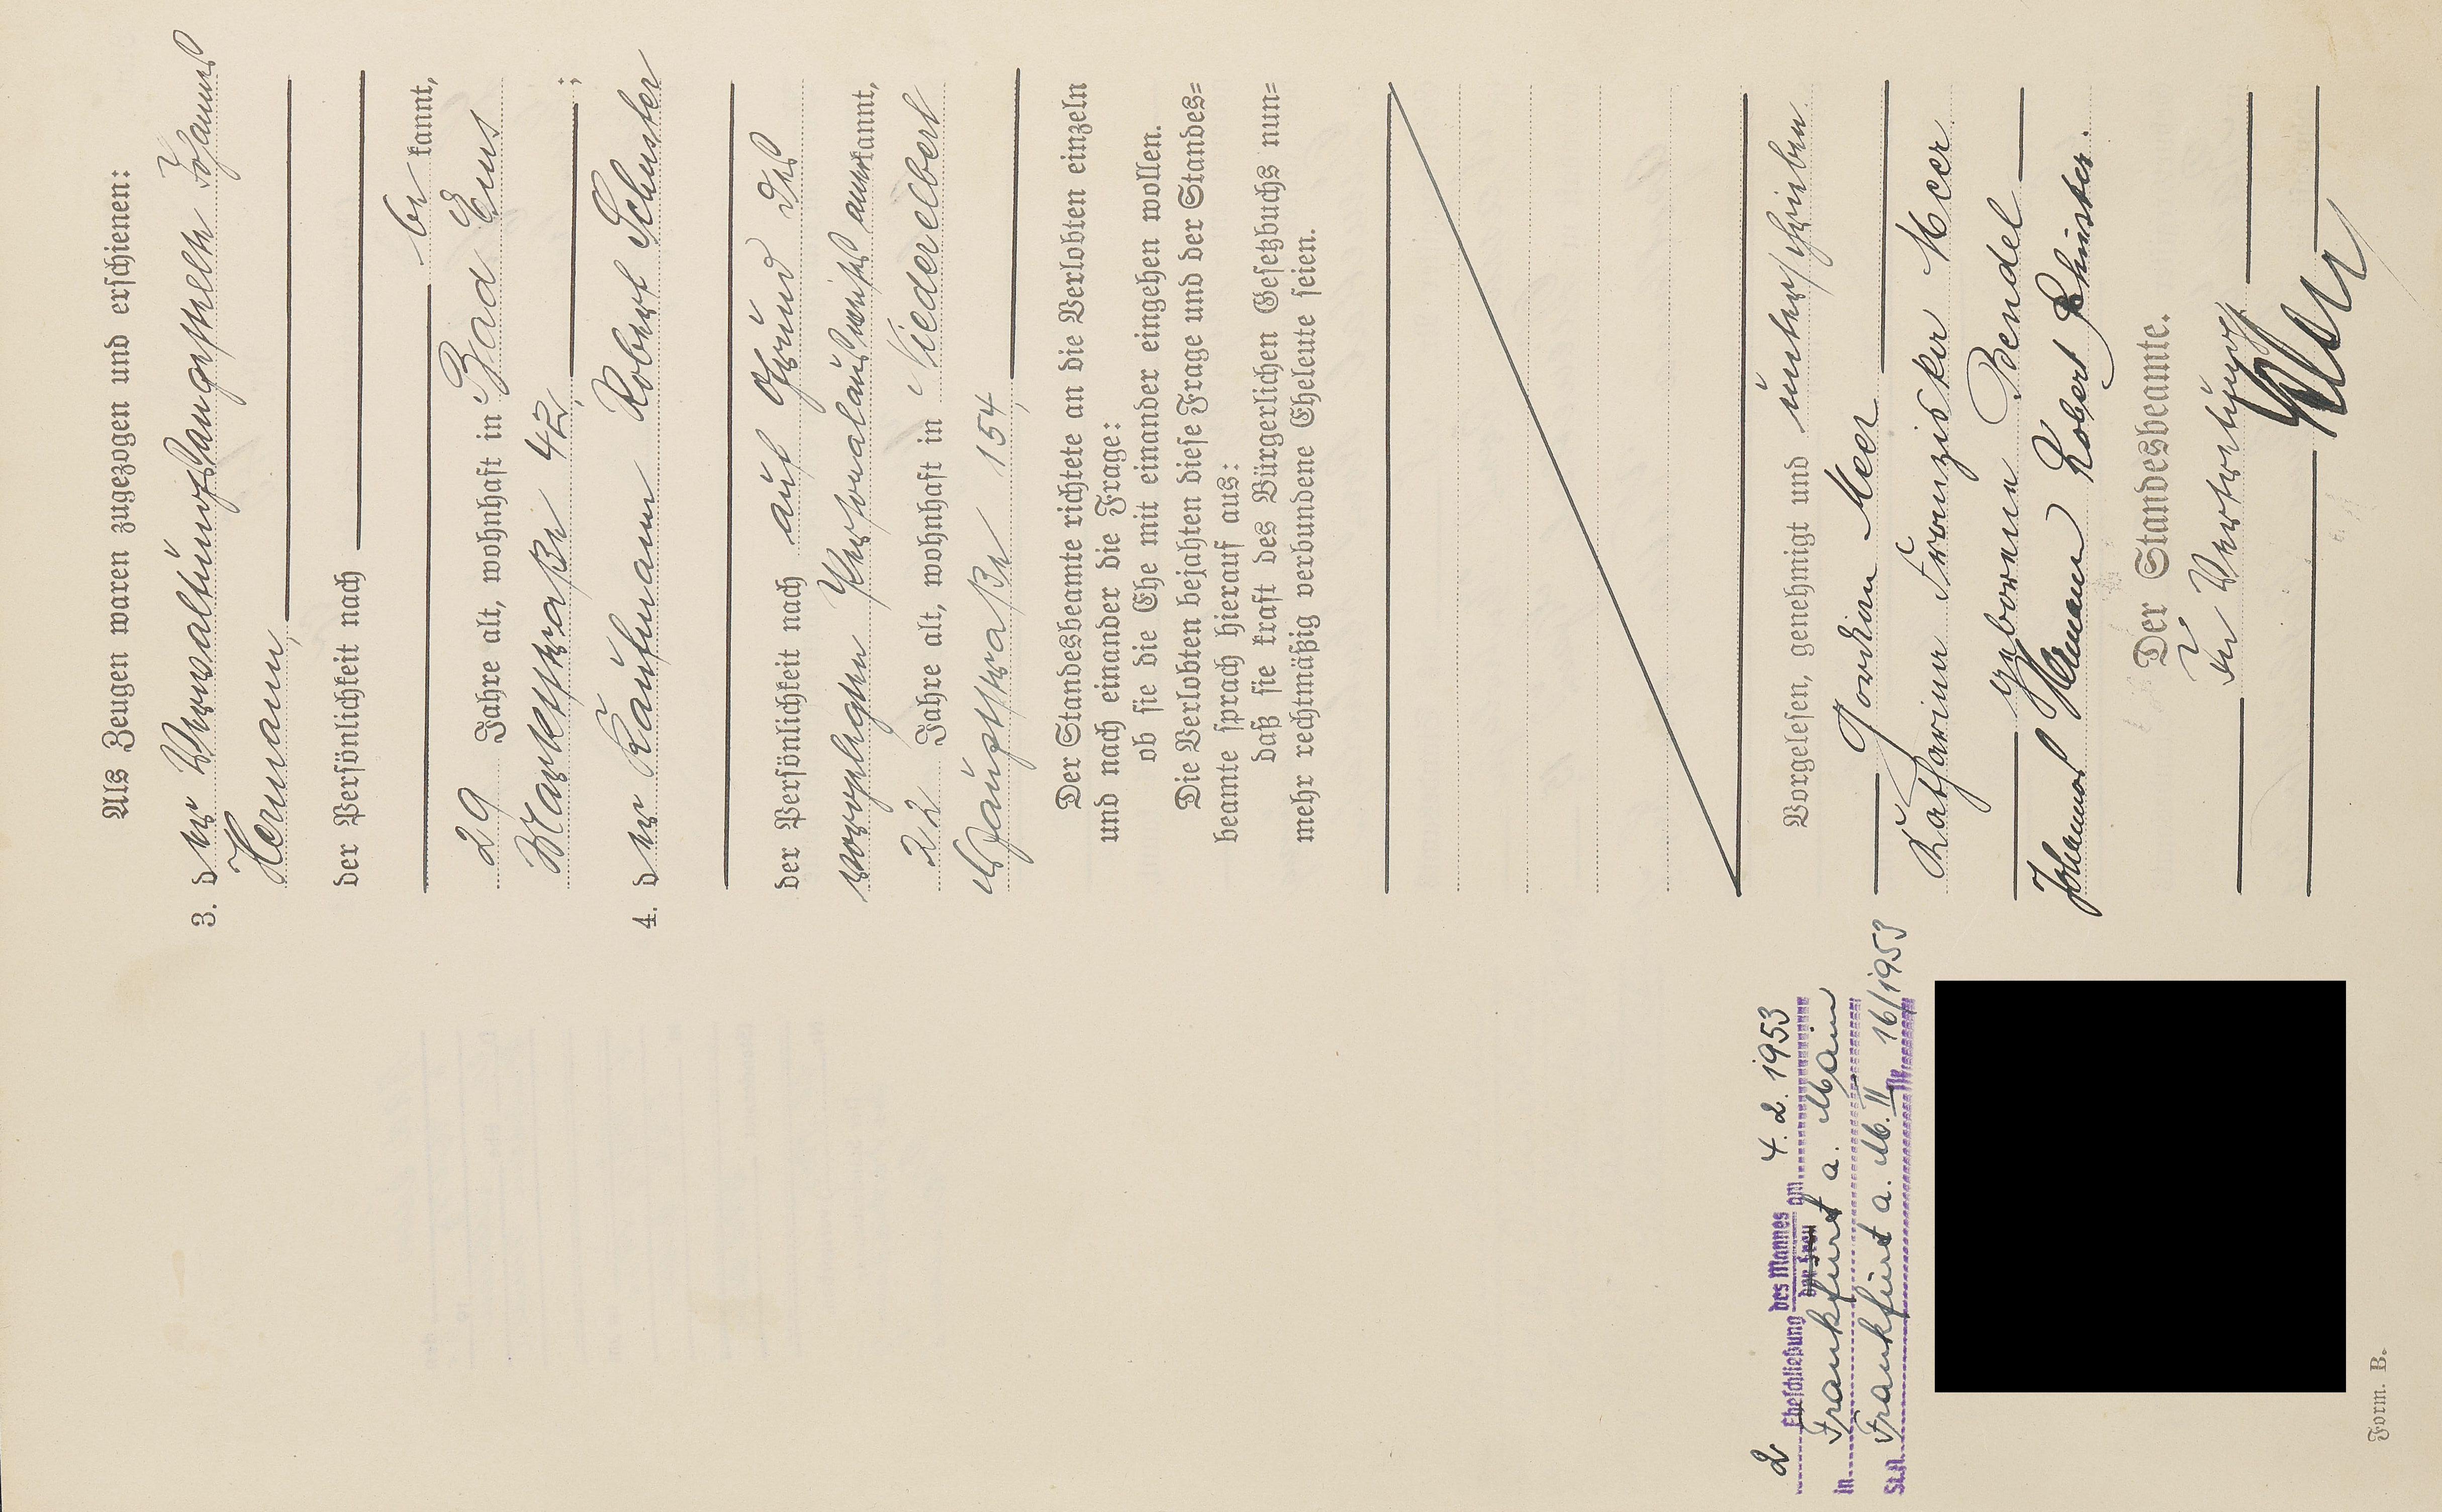 Als Zeugen waren zugezogen und erschienen:
3. der Verwaltungsangestellte Johannes
Hermann,
der Persönlichkeit nach
be kannt,
29 Jahre alt, wohnhaft in Bad Ems
Marktstraße 42,
;
4. der Kaufmann Robert Schuster
der Persönlichkeit nach auf Grund des
vorgelegten Personalausweises anerkannt,
22 Jahre alt, wohnhaft in Niederelbert
Hauptstraße 154,
Der Standesbeamte richtete an die Verlobten einzeln
und nach einander die Frage:
ob sie die Ehe mit einander eingehen wollen.
Die Verlobten bejahten diese Frage und der Standes=
beamte sprach hierauf aus:
daß sie kraft des Bürgerlichen Gesetzbuchs nun=
mehr rechtmäßig verbundene Eheleute seien.
Vorgelesen, genehmigt und unterschrieben
Jordan Meer
Katharina Franziska Meer
geborene Bendel
Johannes Hermann Robert Schuster.
Der Standesbeamte.
In Vertretung
2 Eheschließung des Mannes am 4. 2. 1953
der Frau
in Frankfurt a. Main
St.A. Frankfurt a. M. II Nr. 16/1953
Form. B.